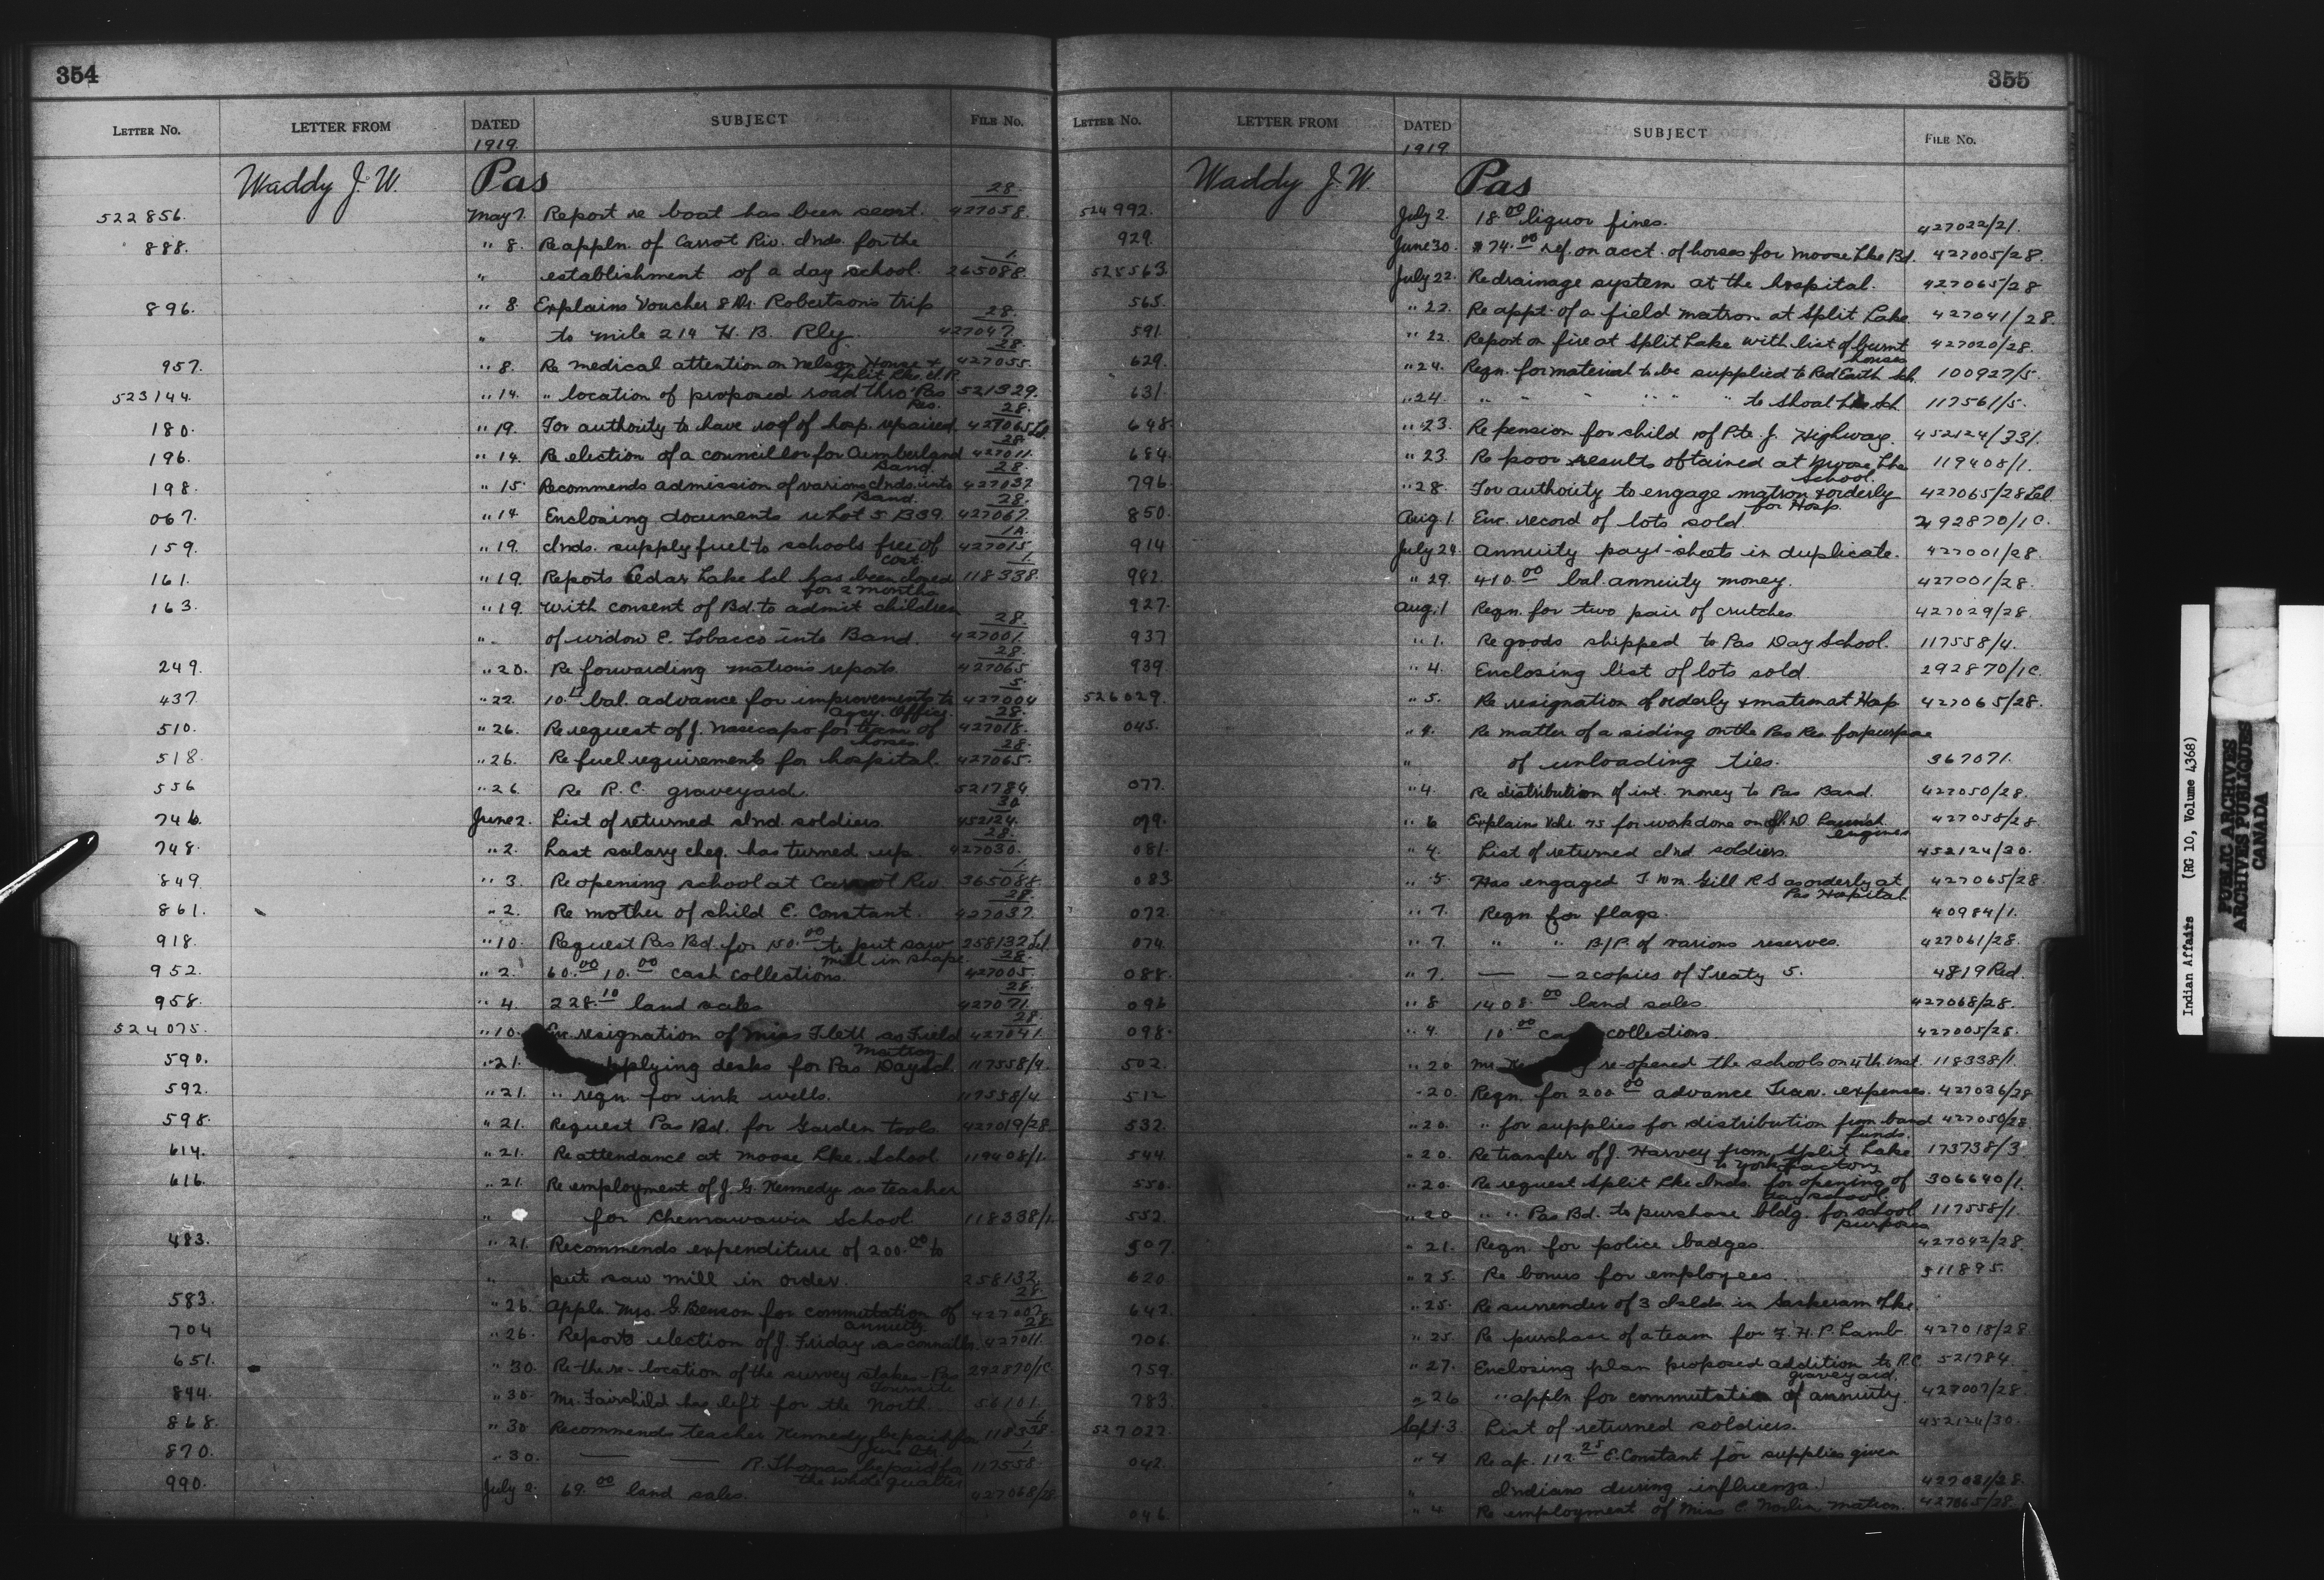 354
LETTER No. LETTER FROM DATED SUBJECT FILE No.
1919
Waddy J. W. Pas
522856. May 7. Report re boat has been sent. 427058/28.
888. " 8. Re appln. of Carrot Riv. Inds. for the
" establishment of a day school. 265088/1.
896. " 8 Explains Voucher 8 Dr. Robertson's trip
" to mile 214 H. B. Rly. 427047/28.
957. " 8. Re medical attention on Nelson House & Split Lke. I.R. 427055/28.
523144. " 14. " location of proposed road thro' Pas Res. 521329.
180. " 19. For authority to have roof of hosp. repaired 427065/28
196. " 14. Re election of a councillor for Cumberland Band. 427011/28.
198. " 15. Recommends admission of various Inds. into Band. 427037/28.
067. " 14. Enclosing documents re Lot 5 B39. 427067/28.
159. " 19. Inds. supply fuel to schools free of cost. 427015/1A.
161. " 19. Reports Cedar Lake Scl has been closed for 2 months 118338/1.
163. " 19. With consent of Bd. to admit children
" of widow E. Tobacco into Band. 427001/28.
249. " 20. Re forwarding matron's reports. 427065/28.
437. " 22. bal. advance for improvements to Agcy. Office. 427004/5.
510. " 26. Re request of J. for team of horses. 427018/28.
518. " 26. Re fuel requirements for hospital. 427065/28.
556 " 26 Re R. C. graveyard. 521784
746. June 2. List of returned Ind. soldiers. 452124/30.
748. " 2. Last salary cheq. has turned up. 427030/28.
849 " 3. Re opening school at Carrot Riv. 365088/1.
861. " 2. Re mother of child E. Constant. 427037/28.
918. " 10. Request Pas Bd. for 150.00 to put saw mill in shape. 258132
952. " 2. 60.00 10.00 cash collections. 427005/28.
958. " 4 228.10 land sales 427071/28.
524075. " 10. Enc. resignation of Miss Flett as Field Matron 427041/28.
590. " 21. supplying desks for Pas Day Sch. 117558/4.
592. " 21. " reqn. for ink wells. 117558/4
598. " 21. Request Pas Bd. for Garden tools 427019/28
614. " 21. Re attendance at Moose Lke. School 119408/1.
616. " 21. Re employment of J. G. Kennedy as teacher
" for Chemawawin School 118338/1.
483. " 21. Recommends expenditure of 200.00 to
" put saw mill in order. 258132
583. " 26. Appln Mrs. G. Benson for commutation of annuity 427007/28.
704 " 26. Reports election of J. Friday as councillor. 427011/28.
651. " 30. Re the re-location of the survey stakes - Pas Townsite 292870/1C
844. " 30. Mr. Fairchild has left for the North. 56101.
868. " 30 Recommends teacher Kennedy be paid for June 118338/1.
870. " 30. — — R. Thomas be paid for the whole quarter 117558/1
990. July 2. 69.00 land sales. 427068/28
355
LETTER No. LETTER FROM DATED SUBJECT FILE No.
1919.
Waddy J. W. Pas
524992. July 2. 18.00 liquor fines. 427022/21.
929. June 30. $74.00 ref. on acct. of horses for Moose Lke Bd. 427005/28.
525563 July 22. Re drainage system at the hospital. 427065/28
565. " 22. Re appt. of a field matron at Split Lake 427041/28.
591. " 22. Report on fire at Split Lake with list of burnt houses 427020/28.
629. " 24. Reqn. for material to be supplied to Red Earth Sch. 100927/5.
631. " 24 " " " " " to Shoal Lke Sch. 117561/5.
648. " 23. Re pension for child of Pte. J. Highway. 452124/331.
684. " 23. Re poor results obtained at Moose Lke School. 119408/1.
796. " 28. For authority to engage matron & orderly for Hosp. 427065/28
850. Aug. 1 Enc. record of lots sold 292870/1C.
914 July 24. Annuity pay-sheets in duplicate. 427001/28.
982. " 29. 410.00 bal. annuity money. 427001/28.
927. Aug. 1 Reqn. for two pair of crutches. 427029/28
937 " 1. Re goods shipped to Pas Day School. 117558/4.
939 " 4. Enclosing list of lots sold. 292870/1C.
526029. " 5. Re resignation of orderly & matron at Hosp 427065/28.
045. " 4. Re matter of a siding on the Pas Res. for purpose
" of unloading ties. 367071.
077. " 4. Re distribution of int. money to Pas Band. 427050/28.
079. " 6 Explains Vchr. 75 for work done on I. D. Launch engines 427058/28
081. " 4. List of returned Ind. soldiers. 452124/30.
083 " 5 Has engaged J. Wm. Gill R.S as orderly at Pas Hospital 427065/28.
072. " 7. Reqn. for flags. 40984/1.
074. " 7. " " B/P. of various reserves. 427061/28.
088. " 7. — — 2 copies of Treaty 5. 4819 Red.
096 " 8 1408.00 land sales. 427068/28.
098. " 4. 10.00 collections. 427005/28.
502. " 20 Mr. re-opened the schools on 4th inst. 118338/1.
512 " 20. Reqn. for 200.00 advance Trav. expenses. 427036/28
532. " 20. " for supplies for distribution from band funds. 427050/28
544 " 20. Re transfer of J. Harvey from Split Lake to York Factory 173738/3
550. " 20. Re request Split Lke Inds. for opening of day school. 306640/1.
552. " 20 " " Pas Bd. to purchase bldg. for school purposes 117558/1.
507. " 21. Reqn. for police badges. 427042/28.
620 " 25. Re bonus for employees. 311895.
642. " 25. Re surrender of 3 Islds. in Saskeram Lke.
706. " 25. Re purchase of a team for F. H. P. Lamb. 427018/28
759. " 27. Enclosing plan proposed addition to R.C. graveyard. 521784
783. " 26 " appln for commutation of annuity. 427007/28.
527027. Sept. 3 List of returned soldiers. 452124/30.
042. " 4 Re a/c. 112.25 E. Constant for supplies given
" Indians during influenza. 427081/28.
046. " 4 Re employment of Miss C. Matron. 427065/28
Indian Affairs (RG 10, Volume 4368)
PUBLIC ARCHIVES
ARCHIVES PUBLIQUES
CANADA